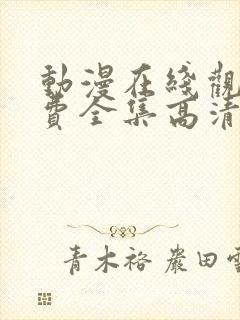 動漫在綫觀
費全集高清
青木裕 嚴田雪